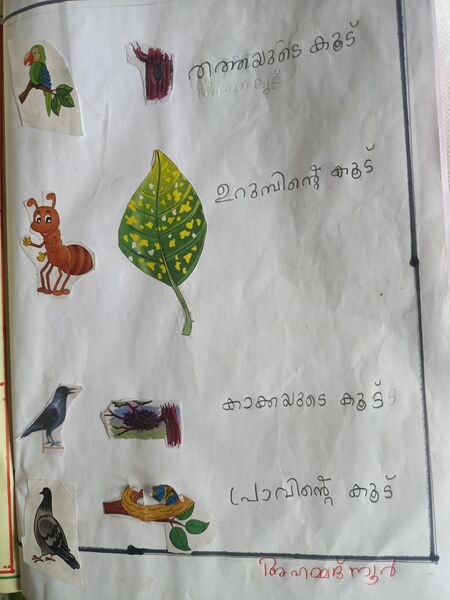 തത്തയുടെ കൂട്
ഉറുമ്പിന്റെ കൂട്
കാക്കയുടെ കൂട്
പ്രാവിന്റെ കൂട്
അഹമ്മദ് നൂർ